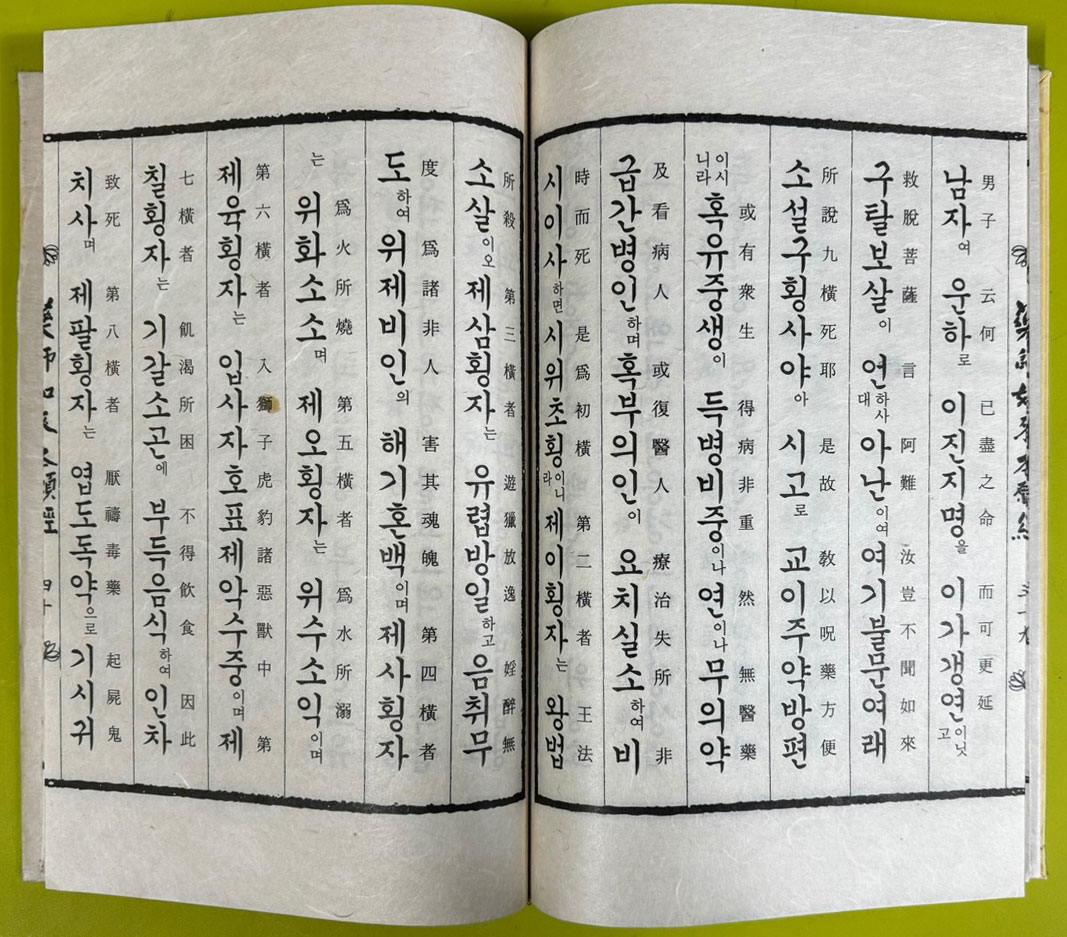 男子 云何 已盡之命 而可更延
남자여 운하로 이진지명을 이가갱연이닛고
救脫菩薩 言 阿難 汝豈不聞如來
구탈보살이 언하사대 아난이여 여기불문여래
所說九橫死耶 是故 敎以呪藥方便
소설구횡사야아 시고로 교이주약방편
或有衆生 得病非重 然 無醫藥
이시니라 혹유중생이 득병비중이나 연이나 무의약
及看病人 或復醫人 療治失所 非
급간병인하며 혹부의인이 요치실소하여 비
時而死 是爲初橫 第二橫者 王法
시이사하면 시위초횡이니라 제이횡자는 왕법
所殺 第三橫者 遊獵放逸 婬醉無
소살이오 제삼횡자는 유렵방일하고 음취무
度 爲諸非人 害其魂魄 第四橫者
도하여 위제비인의 해기혼백이며 제사횡자
爲火所燒 第五橫者 爲水所溺
는 위화소소며 제오횡자는 위수소익이며
第六橫者 入獅子虎豹諸惡獸中 第
제육횡자는 입사자호표제악수중이며 제
七橫者 飢渴所困 不得飮食 因此
칠횡자는 기갈소곤에 부득음식하여 인차
致死 第八橫者 厭禱毒藥 起屍鬼
치사며 제팔횡자는 엽도독약으로 기시귀